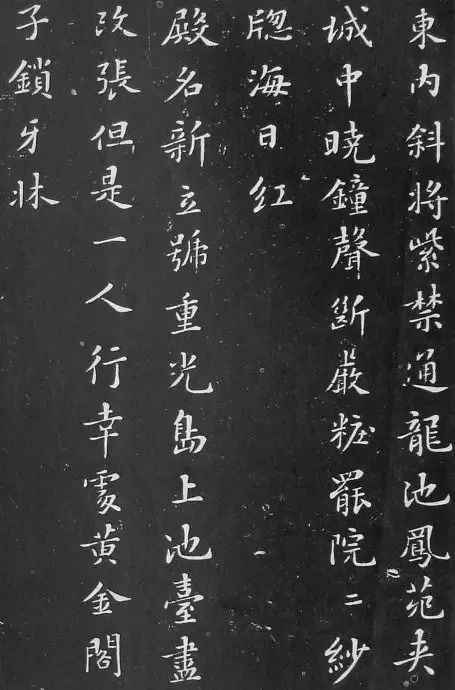 東内斜將紫禁通龍池鳳苑夾
城中曉鐘聲斷嚴粧罷院〻紗
牕海日紅
殿名新立號重光島上池臺盡
改張但是一人行幸處黃金閣
子鎖牙牀